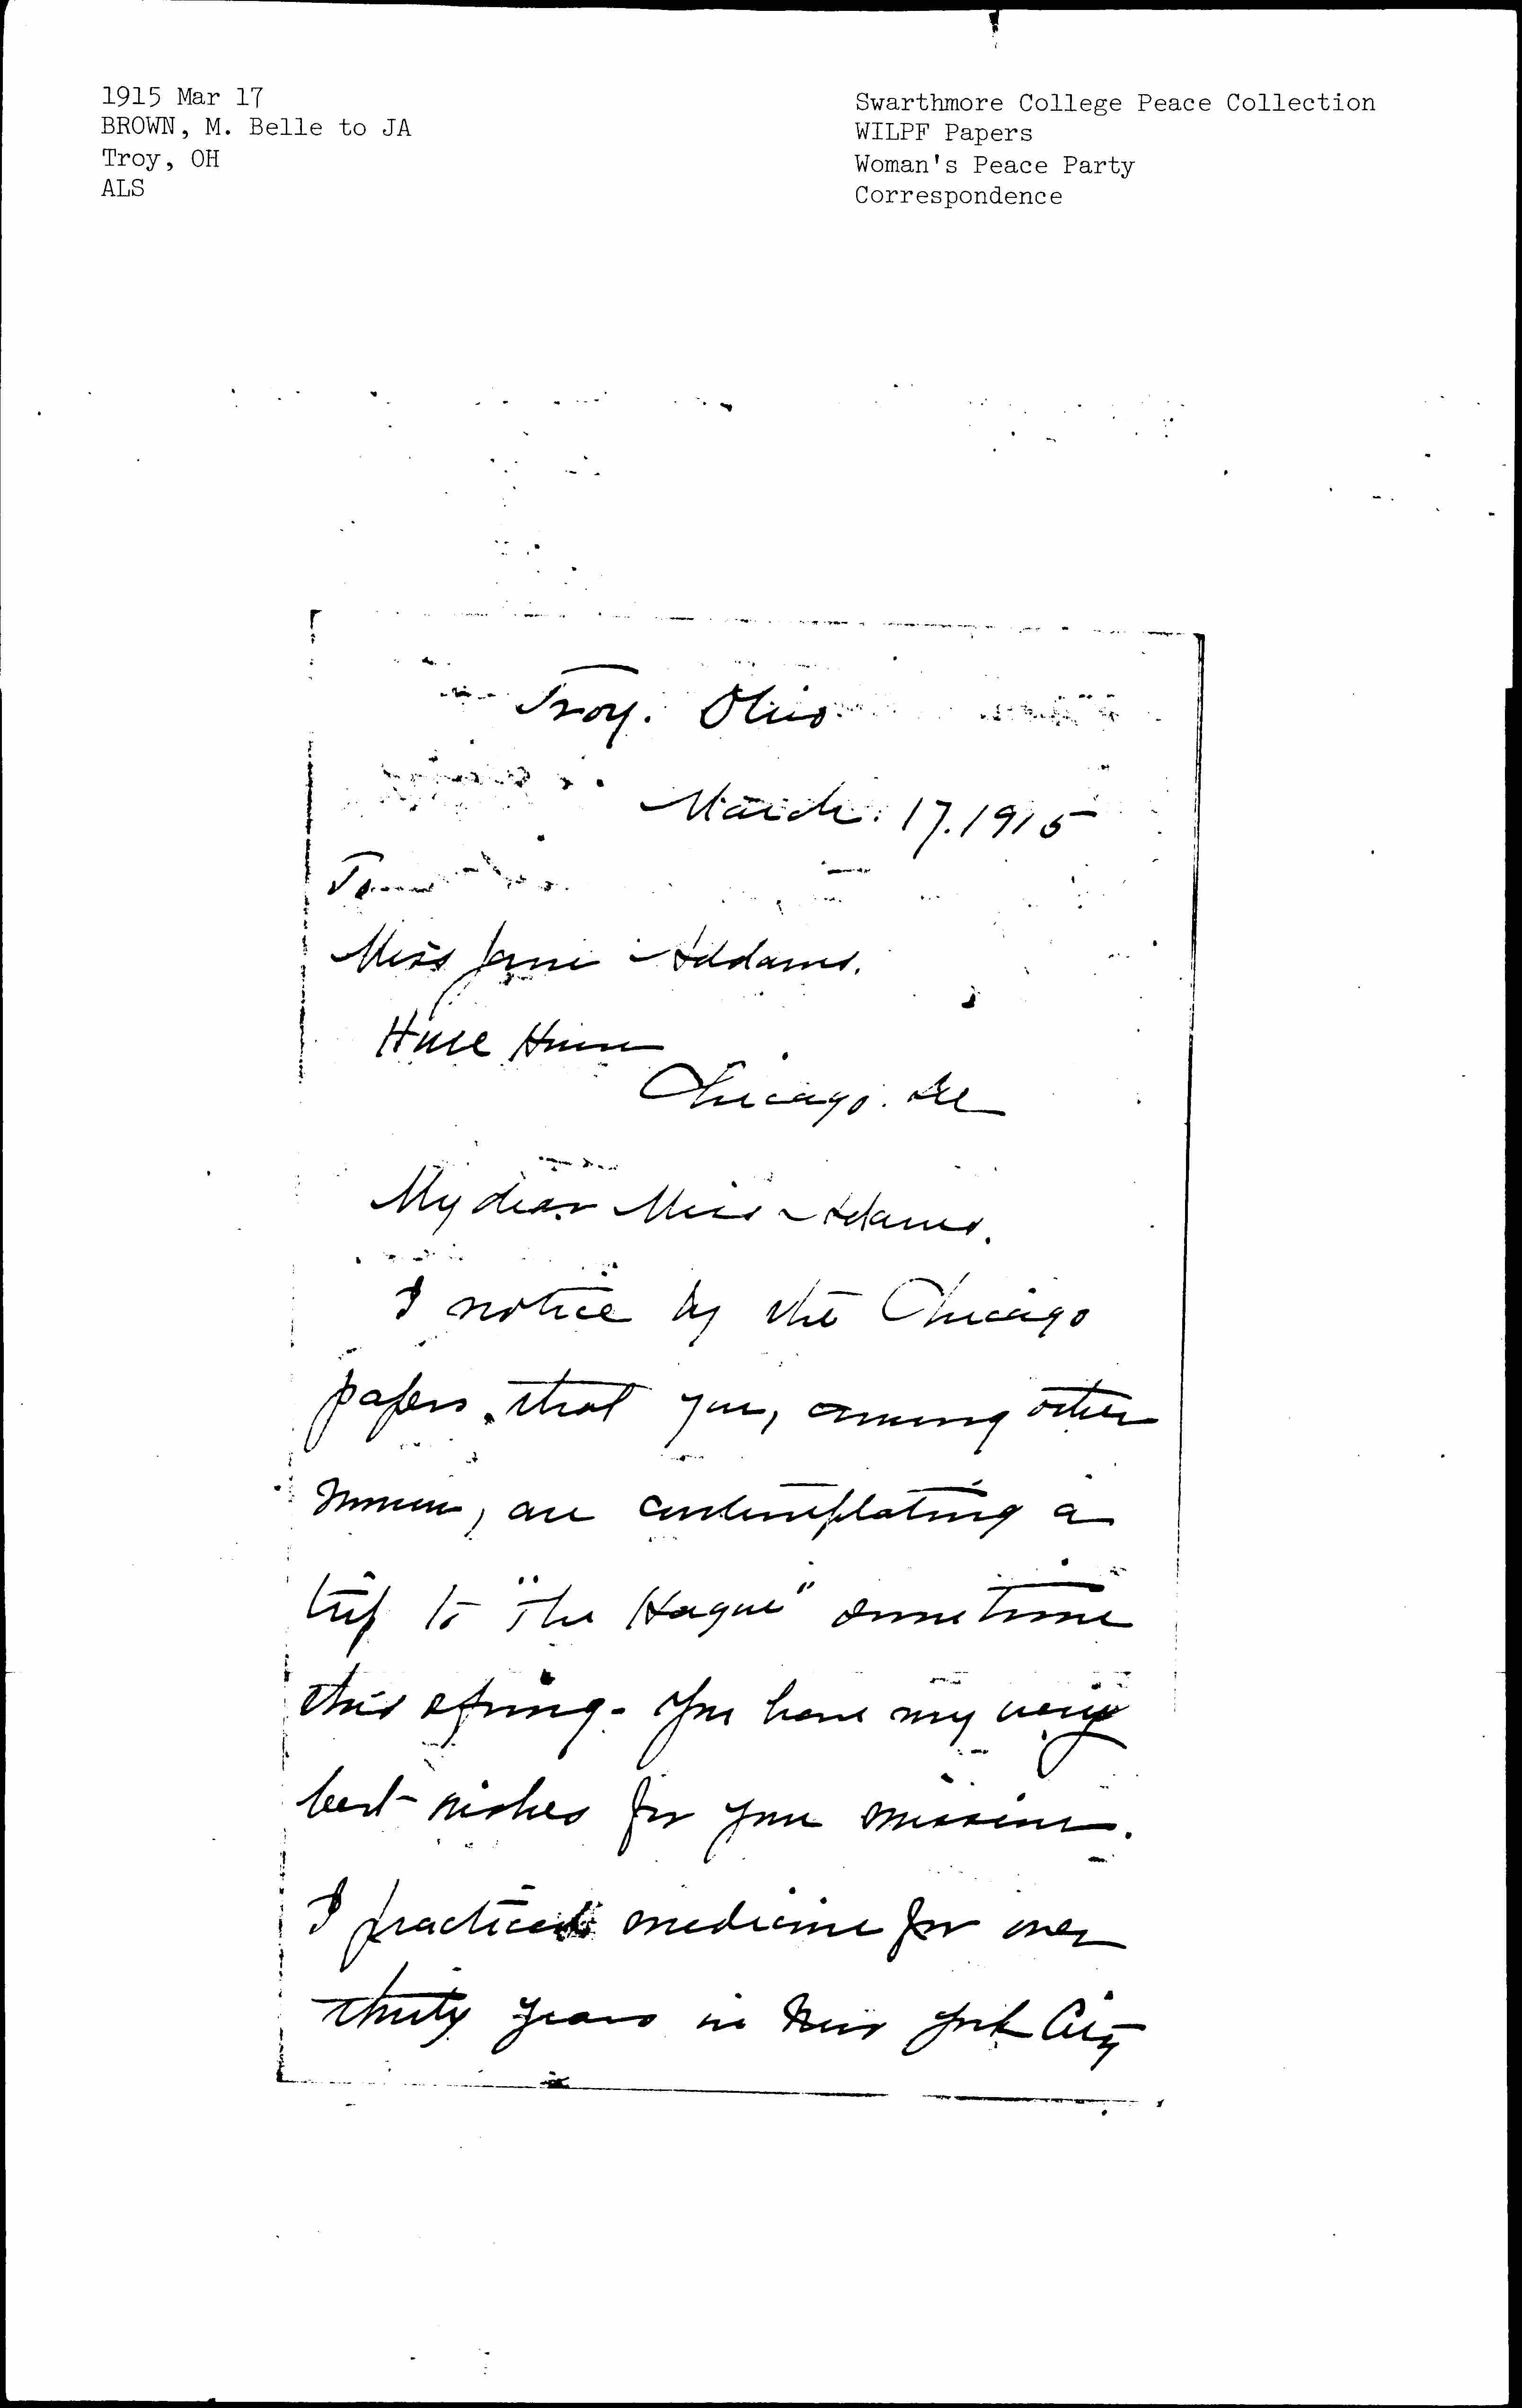 1915 Mar 17
BROWN, M. Belle to JA
Troy, OH
ALS
Swarthmore College Peace Collection
WILPF Papers
Woman's Peace Party
Correspondence
Troy. Ohio
March. 17. 1915
To
Miss Jane Addams.
Hull House
Chicago. Ill
My dear Miss Adams.
I notice by the Chicago
papers, that you, among other
women, are contemplating a
trip to "The Hague" sometime
this spring - You have my very
best wishes for your mission.
I practiced medicine for over
thirty years in New York City